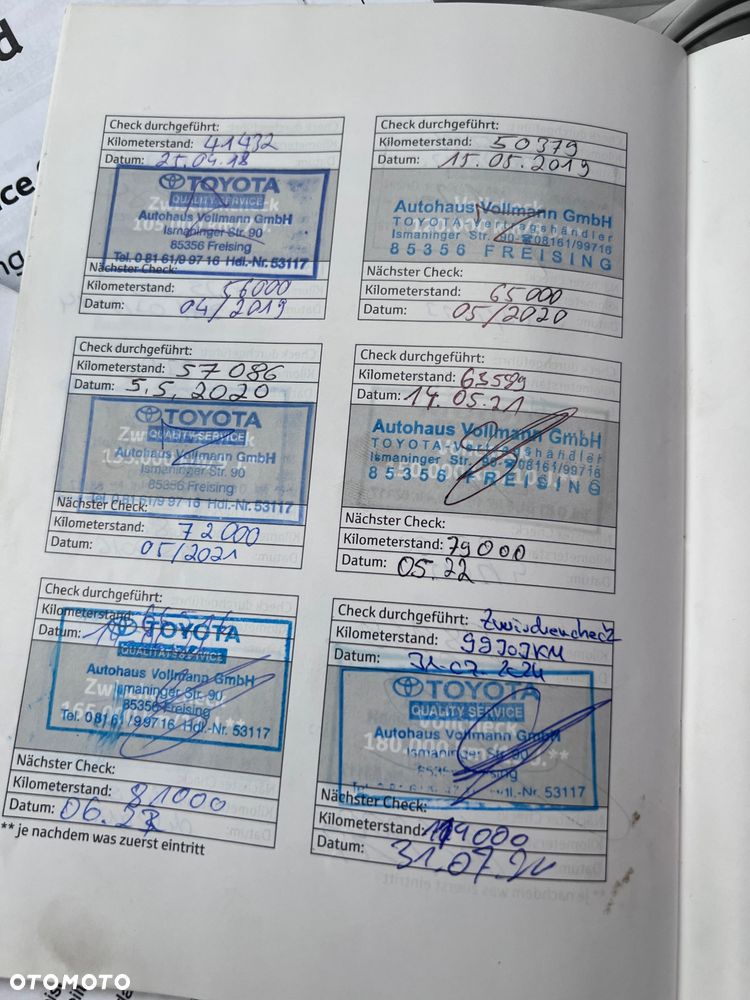 d
Check durchgeführt:
Kilometerstand: 41432
Datum: 25.04.18
TOYOTA
QUALITY SERVICE
Autohaus Vollmann GmbH
Ismaninger Str. 90
85356 Freising
Tel. 0 81 61/9 97 16 Hdl.-Nr. 53117
Nächster Check:
Kilometerstand: 56000
Datum: 04/2019
Check durchgeführt:
Kilometerstand: 50379
Datum: 15.05.2019
Autohaus Vollmann GmbH
TOYOTA-Vertragshändler
Ismaninger Str. 90-☎08161/99716
85356 FREISING
Nächster Check:
Kilometerstand: 65000
Datum: 05/2020
Check durchgeführt:
Kilometerstand: 57086
Datum: 5.5.2020
TOYOTA
QUALITY SERVICE
Autohaus Vollmann GmbH
Ismaninger Str. 90
85356 Freising
Tel. 0 81 61/9 97 16 Hdl.-Nr. 53117
Nächster Check:
Kilometerstand: 72000
Datum: 05/2021
Check durchgeführt:
Kilometerstand: 63589
Datum: 14.05.21
Autohaus Vollmann GmbH
TOYOTA-Vertragshändler
Ismaninger Str. 90-☎08161/99716
85356 FREISING
Nächster Check:
Kilometerstand: 79000
Datum: 05.22
Check durchgeführt:
Kilometerstand:
Datum:
TOYOTA
QUALITÄTSSERVICE
Autohaus Vollmann GmbH
Ismaninger Str. 90
85356 Freising
Tel. 0 81 61/9 97 16 Hdl.-Nr. 53117
Nächster Check:
Kilometerstand: 81000
Datum: 06.23
**je nachdem was zuerst eintritt
Check durchgeführt: Zwischencheck
Kilometerstand: 99707KM
Datum: 31.07.2024
TOYOTA
QUALITY SERVICE
Autohaus Vollmann GmbH
Ismaninger Str. 90
Freising
53117
Nächster Check:
Kilometerstand: 119000
Datum: 31.07.
OTOMOTO